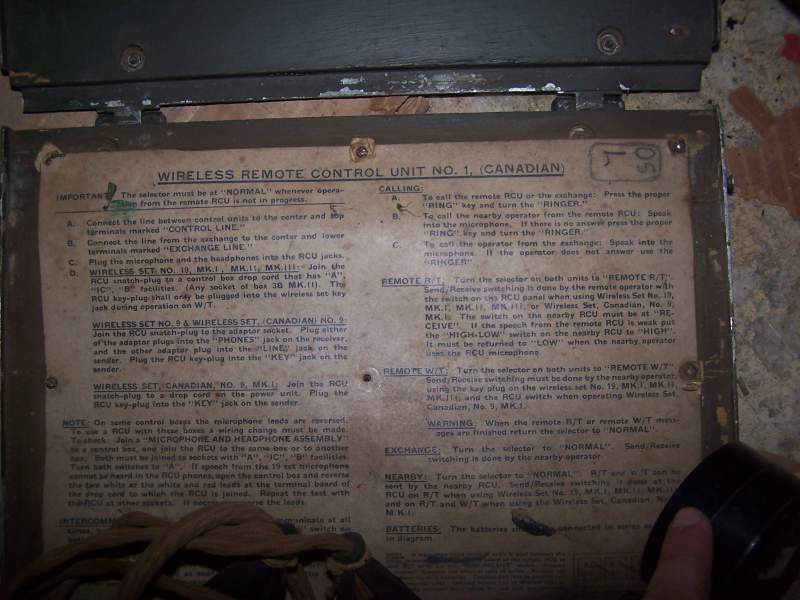 WIRELESS REMOTE CONTROL UNIT NO. 1, (CANADIAN)
IMPORTANT The selector must be at "NORMAL" whenever opera-
tion from the remote RCU is not in progress.
A. Connect the line between control units to the center and top
terminals marked "CONTROL LINE."
B. Connect the line from the exchange to the center and lower
terminals marked "EXCHANGE LINE."
C. Plug the microphone and the headphones into the RCU jacks.
D. WIRELESS SET, NO. 19, MK.I, MK.II, MK.III: Join the
RCU snatch-plug to a control box drop cord that has "A",
"IC", "B" facilities. (Any socket of box 3B MK.II). The
RCU key-plug shall only be plugged into the wireless set key
jack during operation on W/T.
WIRELESS SET NO. 9 & WIRELESS SET, (CANADIAN) NO. 9:
Join the RCU snatch-plug to the adaptor socket. Plug either
of the adaptor plugs into the "PHONES" jack on the receiver,
and the other adaptor plug into the "LINE" jack on the
sender. Plug the RCU key-plug into the "KEY" jack on the
sender.
WIRELESS SET, CANADIAN, NO. 9, MK.I: Join the RCU
snatch-plug to a drop cord on the power unit. Plug the
RCU key-plug into the "KEY" jack on the sender.
NOTE: On some control boxes the microphone leads are reversed.
To use a RCU with these boxes a wiring change must be made.
To check: Join a "MICROPHONE AND HEADPHONE ASSEMBLY"
to a control box, and join the RCU to the same box or to another
box. Both must be joined to sockets with "A", "IC", "B" facilities.
Turn both switches to "A". If speech from the 19 set microphone
cannot be heard in the RCU phones, open the control box and reverse
the two white or the white and red leads at the terminal board of
the drop cord to which the RCU is joined. Repeat the test with
the RCU at other sockets. If necessary reverse the leads.
INTERCOMM municate at all
times, switch on
CALLING:
A. To call the remote RCU or the exchange: Press the proper
"RING" key and turn the "RINGER."
B. To call the nearby operator from the remote RCU: Speak
into the microphone. If there is no answer press the proper
"RING" key and turn the "RINGER."
C. To call the operator from the exchange: Speak into the
microphone. If the operator does not answer use the
"RINGER".
REMOTE R/T: Turn the selector on both units to "REMOTE R/T".
Send/Receive switching is done by the remote operator with
the switch on the RCU panel when using Wireless Set No. 19,
MK.I, MK.II, MK.III, or Wireless Set, Canadian, No. 9,
MK.I. The switch on the nearby RCU must be at "RE-
CEIVE". If the speech from the remote RCU is weak put
the "HIGH-LOW" switch on the nearby RCU to "HIGH".
It must be returned to "LOW" when the nearby operator
uses the RCU microphone
REMOTE W/T: Turn the selector on both units to "REMOTE W/T".
Send/Receive switching must be done by the nearby operator,
using the key plug on the wireless set No. 19, MK.I, MK.II,
MK.III, and the RCU switch when operating Wireless Set,
Canadian, No. 9, MK.I.
WARNING: When the remote R/T or remote W/T mess-
ages are finished return the selector to "NORMAL".
EXCHANGE: Turn the selector to "NORMAL". Send/Receive
switching is done by the nearby operator
NEARBY: Turn the selector to "NORMAL". R/T and W/T can be
sent by the nearby RCU. Send/Receive switching is done at the
RCU on R/T when using Wireless Set No. 19, MK.I, MK.II, MK.III
and on R/T and W/T when using the Wireless Set, Canadian, No. 9
MK.I.
BATTERIES: The batteries connected in series as
in diagram.